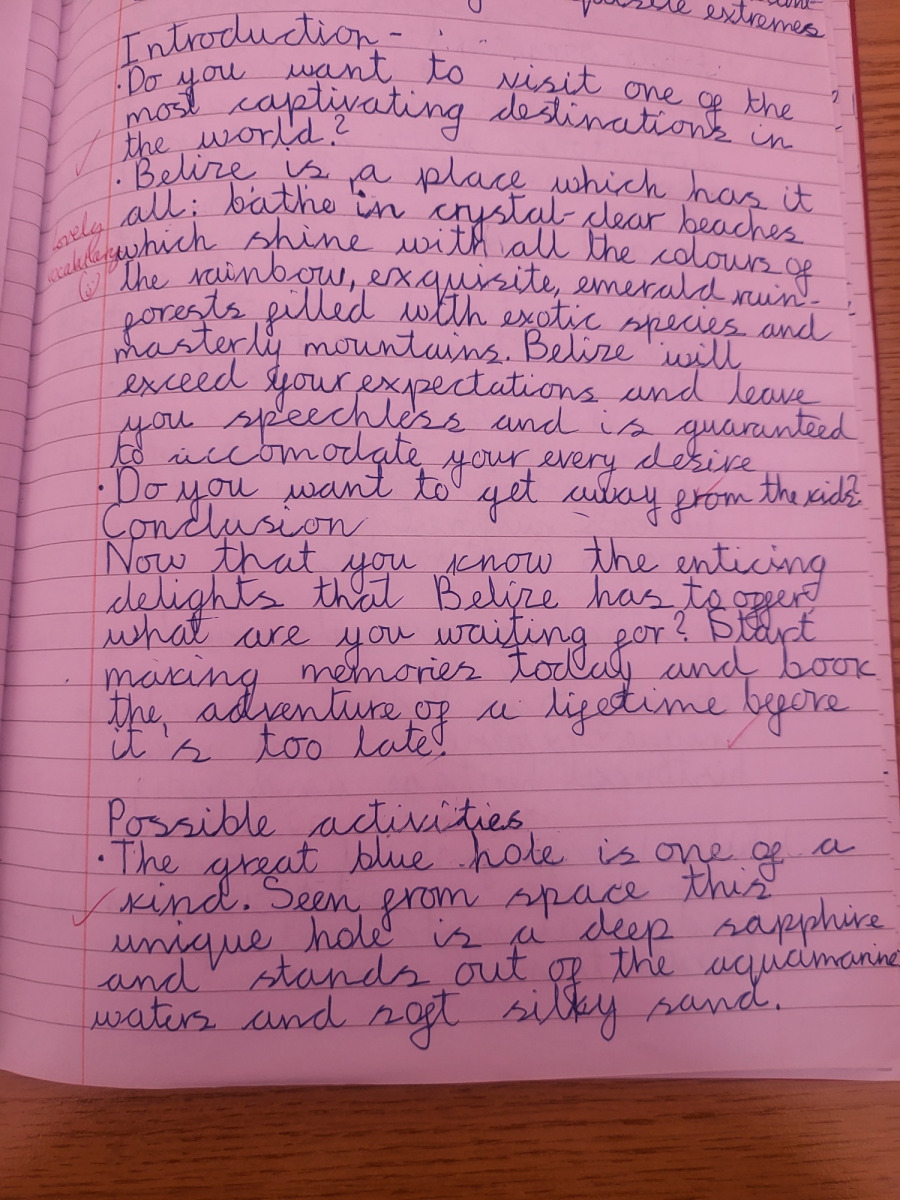 extremes
Introduction -
• Do you want to visit one of the
most captivating destinations in
the world?
• Belize is a place which has it
all: bathe in crystal-clear beaches
which shine with all the colours of
the rainbow, exquisite, emerald rain-
forests filled with exotic species and
masterly mountains. Belize will
exceed your expectations and leave
you speechless and is guaranteed
to accomodate your every desire
• Do you want to get away from the kids?
lovely
vocabulary
Conclusion
Now that you know the enticing
delights that Belize has to offer,
what are you waiting for? Start
making memories today and book
the adventure of a lifetime before
it's too late!
Possible activities
• The great blue hole is one of a
kind. Seen from space this
unique hole is a deep sapphire
and stands out of the aquamarine
waters and soft silky sand.